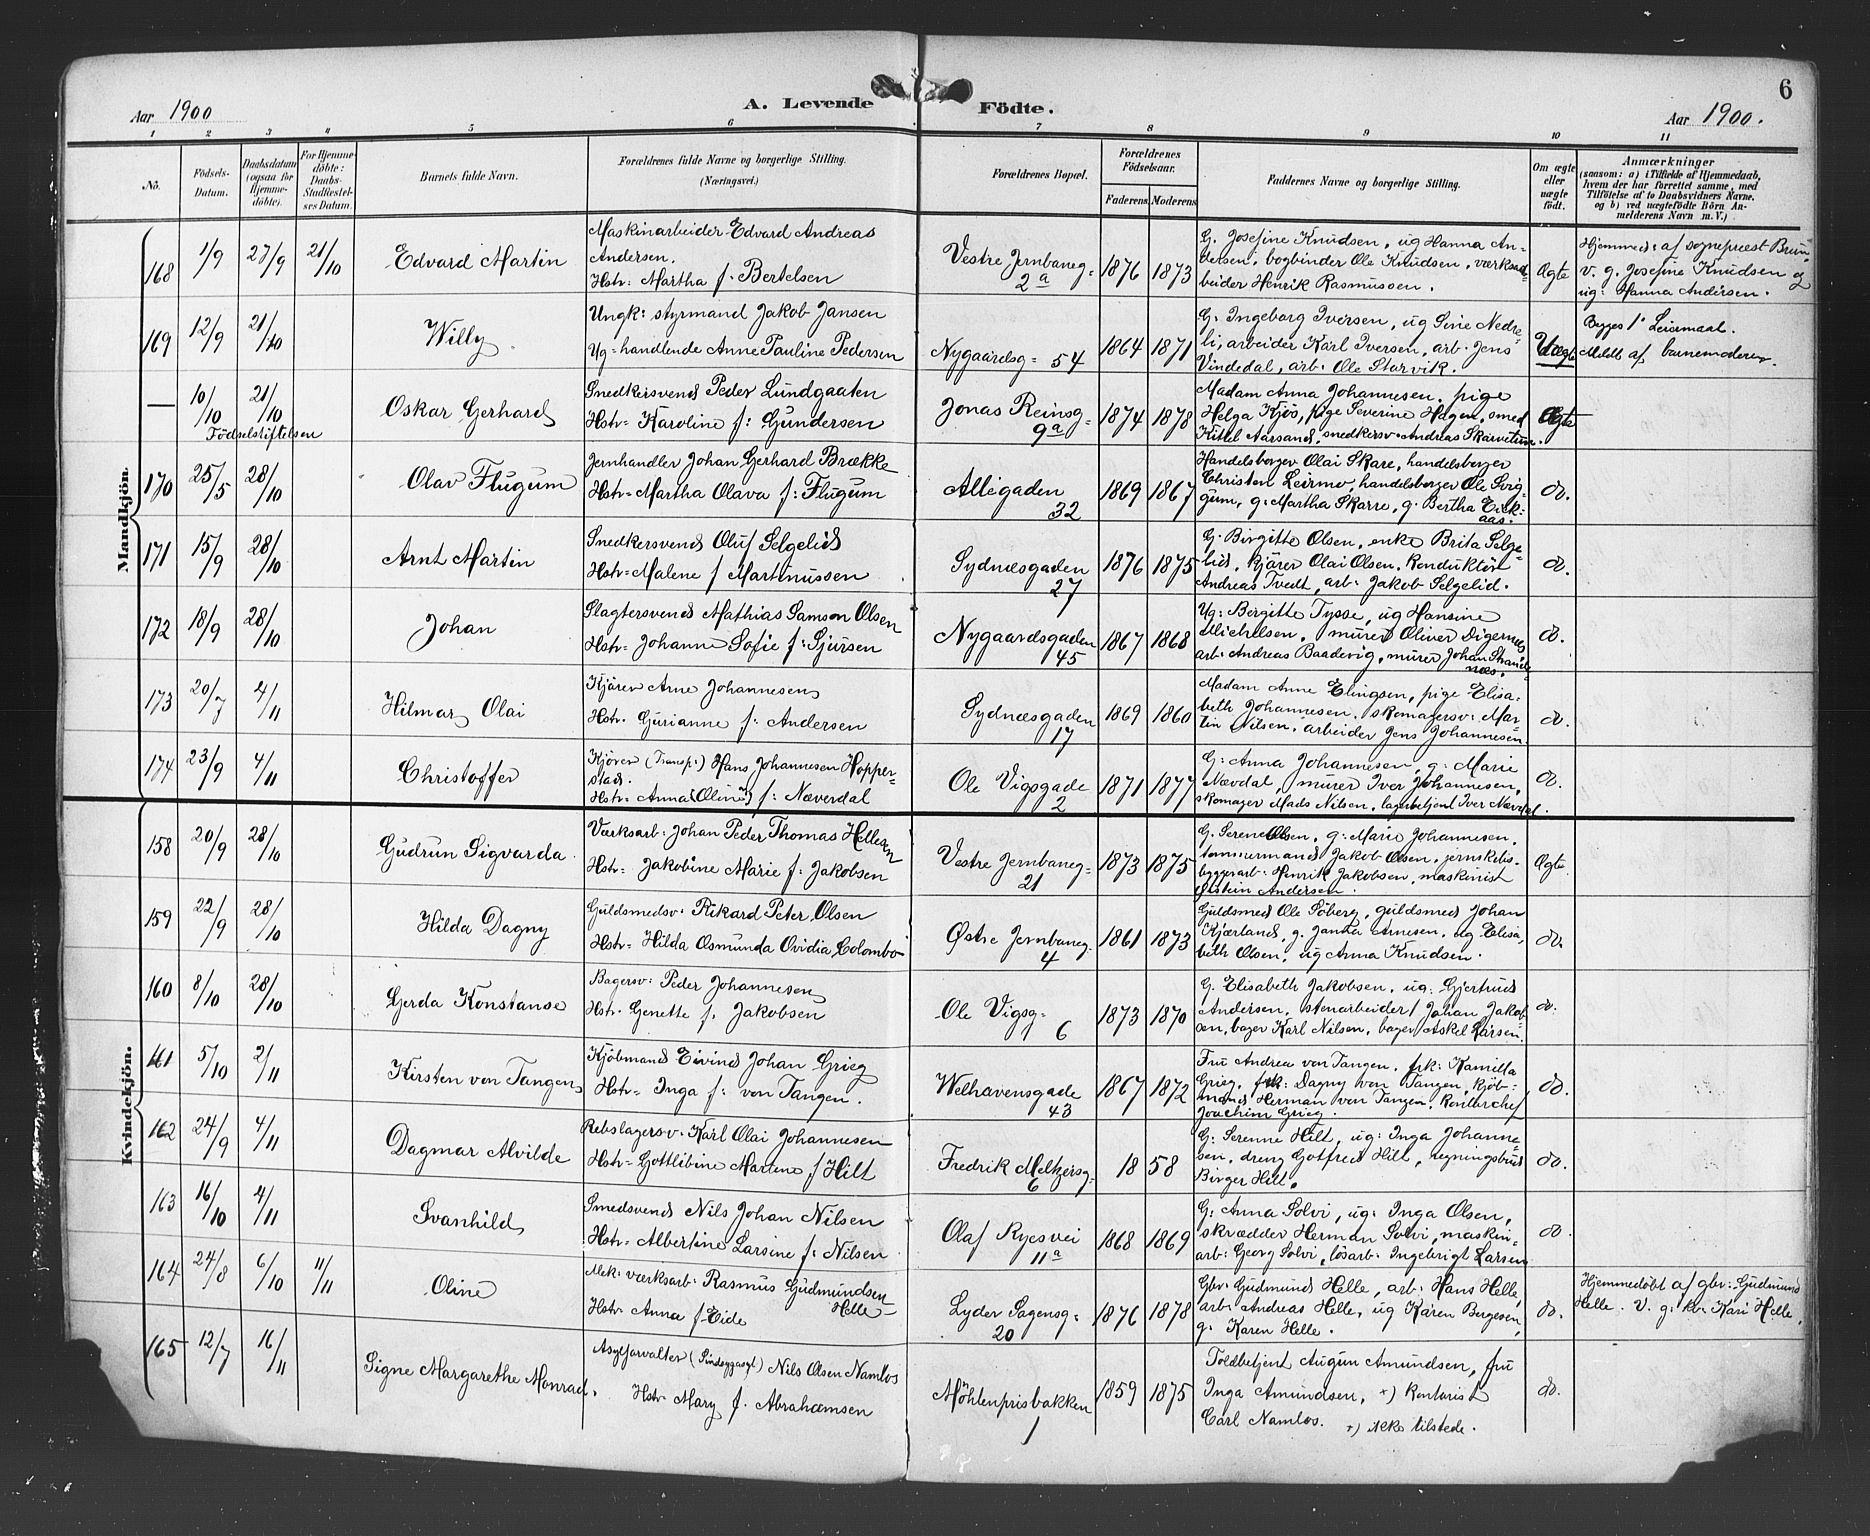 6
Aar 1900
A. Levende Födte.
Aar 1900.
1 2 3 4 5 6 7 8 9 10 11
No.
Födsels-Datum.
Daabsdatum (ogsaa for Hjemme-döbte).
For Hjemme-döbte: Daabs-Stadfæstel-ses Datum.
Barnets fulde Navn.
Forældrenes fulde Navne og borgerlige Stilling.
(Næringsvei.)
Forældrenes Bopæl.
Forældrenes Födselsaar.
Faderens Moderens
Faddernes Navne og borgerlige Stilling.
Om ægte eller uægte födt.
Anmærkninger
(saasom: a) i Tilfælde af Hjemmedaab, hvem der har forrettet samme, med Tilföielse af to Daabsvidners Navne, og b) ved uægtefödte Börn An-melderens Navn m. V.)
Mandkjön.
168 1/9 27/9 21/10 Edvard Martin
Maskinarbeider Edvard Andreas
Andersen.
Hstr: Martha f. Bertelsen
Vestre Jernbaneg=
2a
1876 1873
G. Josefine Knudsen, ug Hanna An=
dersen, bogbinder Ole Knudsen, værksad=
beider Henrik Rasmussen.
Ægte
Hjemmed: af sognepræst Brun,
V. g. Josefine Knudsen og
ug: Hanna Andersen.
169 12/9 21/10 Willy
Ungk: styrmand Jakob Jansen
Ug= handlende Anne Pauline Pedersen
Nygaardsg= 54
1864 1871
G. Ingeborg Iversen, ug Sine Nedre=
li, arbeider Karl Iversen, arb. Jens
Vindedal, arb. Ole Starvik.
Uægte
Begges 1e Leiermaal.
Meldt af barnemoderen.
— 10/10 21/10 Oskar Gerhard
Födselstiftelsen
Snedkersvend Peder Lundgaaten
Hstr= Karoline f: Gundersen
Jonas Reinsg=
9a
1874 1878
Madam Anna Johannesen, pige
Helga Kjös, pige Severine Hagen, smed
Kittel Aarsand, snedkersv. Andreas Skarvetun.
Ægte
170 25/5 28/10 Olav Flugum
Jernhandler Johan Gerhard Brække
Hstr= Martha Olava f: Flugum
Allégaden
32
1869 1867
Handelsborger Olai Skare, handelsborger
Christen Leirmo, handelsborger Ole Svig=
gum, g: Martha Skarre, g. Bertha Eik=
aas.
do.
171 15/9 28/10 Arnt Martin
Snedkersvend Oluf Selgelid
Hstr= Malene f Martinussen
Sydnæsgaden
27
1876 1875
G. Birgitte Olsen, enke Brita Selge=
lid, kjörer Olai Olsen, Konduktör
Andreas Tvedt, arb. Jakob Selgelid.
do.
172 18/9 28/10 Johan
Slagtersvend Mathias Samson Olsen
Hstr= Johanne Sofie f: Sjursen
Nygaardsgaden
45
1867 1868
Ug: Bergitte Tysse, ug Hansine
Michelsen, murer Oliver Digernes,
arb. Andreas Baadevig, murer Johan Strand=
næs.
do.
173 20/7 4/11 Hilmar Olai
Kjörer Arne Johannesen
Hstr. Gurianne f: Andersen
Sydnæsgaden
17
1869 1860
Madam Anne Elingsen, pige Elisa=
beth Johannesen, skomagersv. Mar=
tin Nilsen, arbeider Jens Johannesen.
do.
174 23/9 4/11 Christoffer
Kjörer (Transp.) Hans Johannesen Hopper=
stad.
Hstr: Anna (Oline) f: Næverdal
Ole Vigsgade
2
1871 1877
G: Anna Johannesen, g: Marie
Nævdal, murer Iver Johannesen,
skomager Mads Nilsen, lagerbetjent Iver Nævdal.
do.
Kvindekjön.
158 20/9 28/10 Gudrun Sigvarda
Værksarb: Johan Peder Thomas Hellesen
Hstr= Jakobine Marie f: Jakobsen
Vestre Jernbaneg=
21
1873 1875
G. Serene Olsen, g: Marie Johannesen,
tömmermand Jakob Olsen, jernskibs=
byggerarb: Henrik Jakobsen, maskinist
Östein Andersen.
Ægte
159 22/9 28/10 Hilda Dagny
Guldsmedsv: Rikard Peter Olsen
Hstr= Hilda Osmunda Ovidia Colombo
Østre Jernbaneg.
4
1861 1873
Guldsmed Ole Söberg, guldsmed Johan
Kjærland, g. Janna Arnesen, ug Elisa=
beth Olsen, ug Anna Knudsen.
do.
160 8/10 28/10 Gerda Konstanse
Bagersv: Peder Johannesen
Hstr. Genette f. Jakobsen
Ole Vigsg=
6
1873 1870
G. Elisabeth Jakobsen, ug: Gjertrud
Andersen, stenarbeider Johan Jakob=
sen, bager Karl Nilsen, bager Askel Larsen.
do.
161 5/10 2/11 Kirsten von Tangen
Kjöbmand Eivind Johan Grieg
Hstr= Inga f: von Tangen.
Welhavensgade
43
1867 1872
Fru Andrea von Tangen, frk: Kamilla
Grieg, frk: Dagny von Tangen, kjöb=
mand Herman von Tangen, Kontorchef
Joachim Grieg.
do.
162 24/9 4/11 Dagmar Alvilde
Rebslagersv. Karl Olai Johannesen
Hstr= Gottlibine Martine f Hilt
Fredrik Meltzersg.
6
18 58
G: Serenne Hilt, ug: Inga Johanne=
sen, dreng Gotfred Hilt, regningsbud
Birger Hilt.
do.
163 16/10 4/11 Svanhild
Smedsvend Nils Johan Nilsen
Hstr= Albertine Larsine f: Nilsen
Olaf Ryesvei
11a
1868 1869
G: Anna Solvi, ug: Inga Olsen,
skrædder Herman Solvi, maskin=
arb: Georg Solvi, lösarb. Ingebrigt Larsen
do.
164 24/8 6/10 11/11 Oline
Mek: værksarb. Rasmus Gudmundsen
Helle
Hstr. Anna f Eide
Lyder Sagensg=
20
1876 1878
Gbr: Gudmund Helle, arb: Hans Helle,
arb. Andreas Helle, ug Karen Bergesen,
g. Karen Helle.
do.
Hjemmedöbt af gbr: Gudmund
Helle. V. g: kv. Kari Helle.
165 12/7 16/11 Signe Margarethe Monrad.
Asylforvalter (Sindsygasyl) Nils Olsen Namlos
Hstr Mary f. Abrahamsen
Möhlenprisbakken
1
1859 1875
Toldbetjent Augun Amundsen, fru
Inga Amundsen, +) Kontorist
Carl Namlos. +) ikke tilstede.
do.